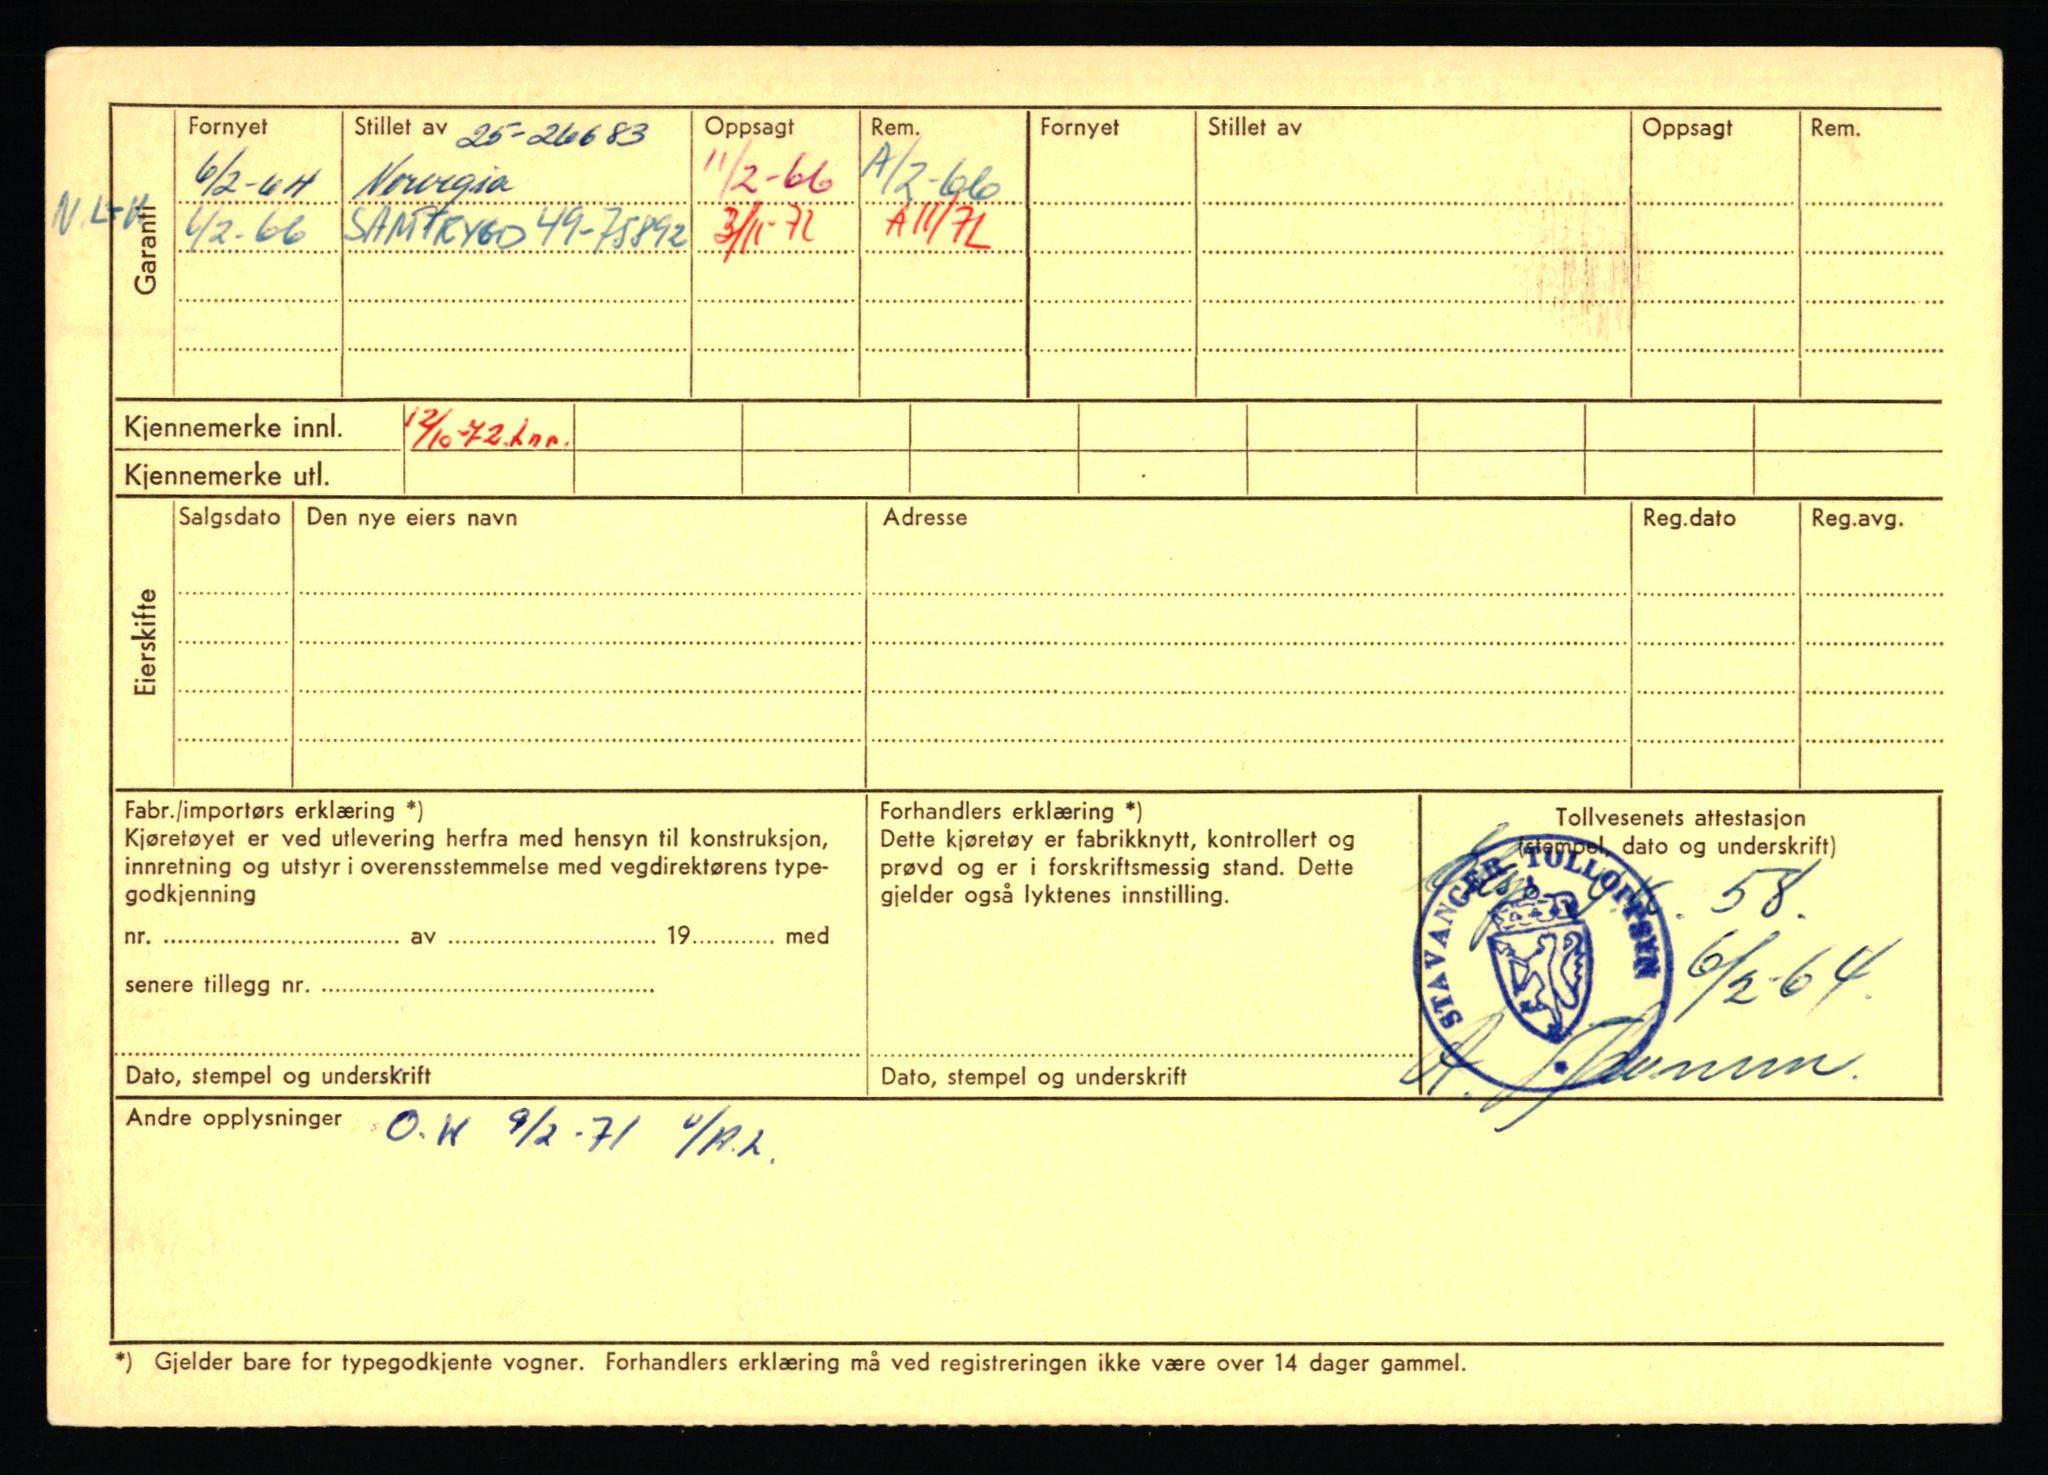 Garanti
Fornyet Stillet av 25-26683 Oppsagt Rem. Fornyet Stillet av Oppsagt Rem.
6/2-64 Norvegia 11/2-66 A/2-66
1/2-66 SAMTRYGD 49-75892 3/11-72 A11/72
Kjennemerke innl. 12/10-72.
Kjennemerke utl.
Eierskifte
Salgsdato Den nye eiers navn Adresse Reg.dato Reg.avg.
Fabr./importørs erklæring *)
Kjøretøyet er ved utlevering herfra med hensyn til konstruksjon,
innretning og utstyr i overensstemmelse med vegdirektørens type-
godkjenning
nr. .................... av .................... 19............ med
senere tillegg nr. ....................
Dato, stempel og underskrift
Forhandlers erklæring *)
Dette kjøretøy er fabrikknytt, kontrollert og
prøvd og er i forskriftsmessig stand. Dette
gjelder også lyktenes innstilling.
Dato, stempel og underskrift
Tollvesenets attestasjon
(stempel, dato og underskrift)
STAVANGER TOLLOPPSYN
58.
6/2-64.
Andre opplysninger O.K 9/2-71
*) Gjelder bare for typegodkjente vogner. Forhandlers erklæring må ved registreringen ikke være over 14 dager gammel.